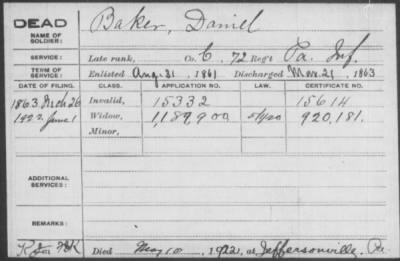 DEAD
Baker, Daniel
NAME OF SOLDIER:
SERVICE: Late rank, Co. C, 72 Reg't Pa. Inf.
TERM OF SERVICE: Enlisted Aug. 31, 1861 Discharged Mar. 21, 1863
DATE OF FILING. CLASS. APPLICATION NO. LAW. CERTIFICATE NO.
1863 Mch 26 Invalid, 15332 15614
1922 June 1 Widow, 1,189,900 5/1/20 920,181.
Minor,
ADDITIONAL SERVICES:
REMARKS:
Died May 1922, at Jeffersonville, Pa.